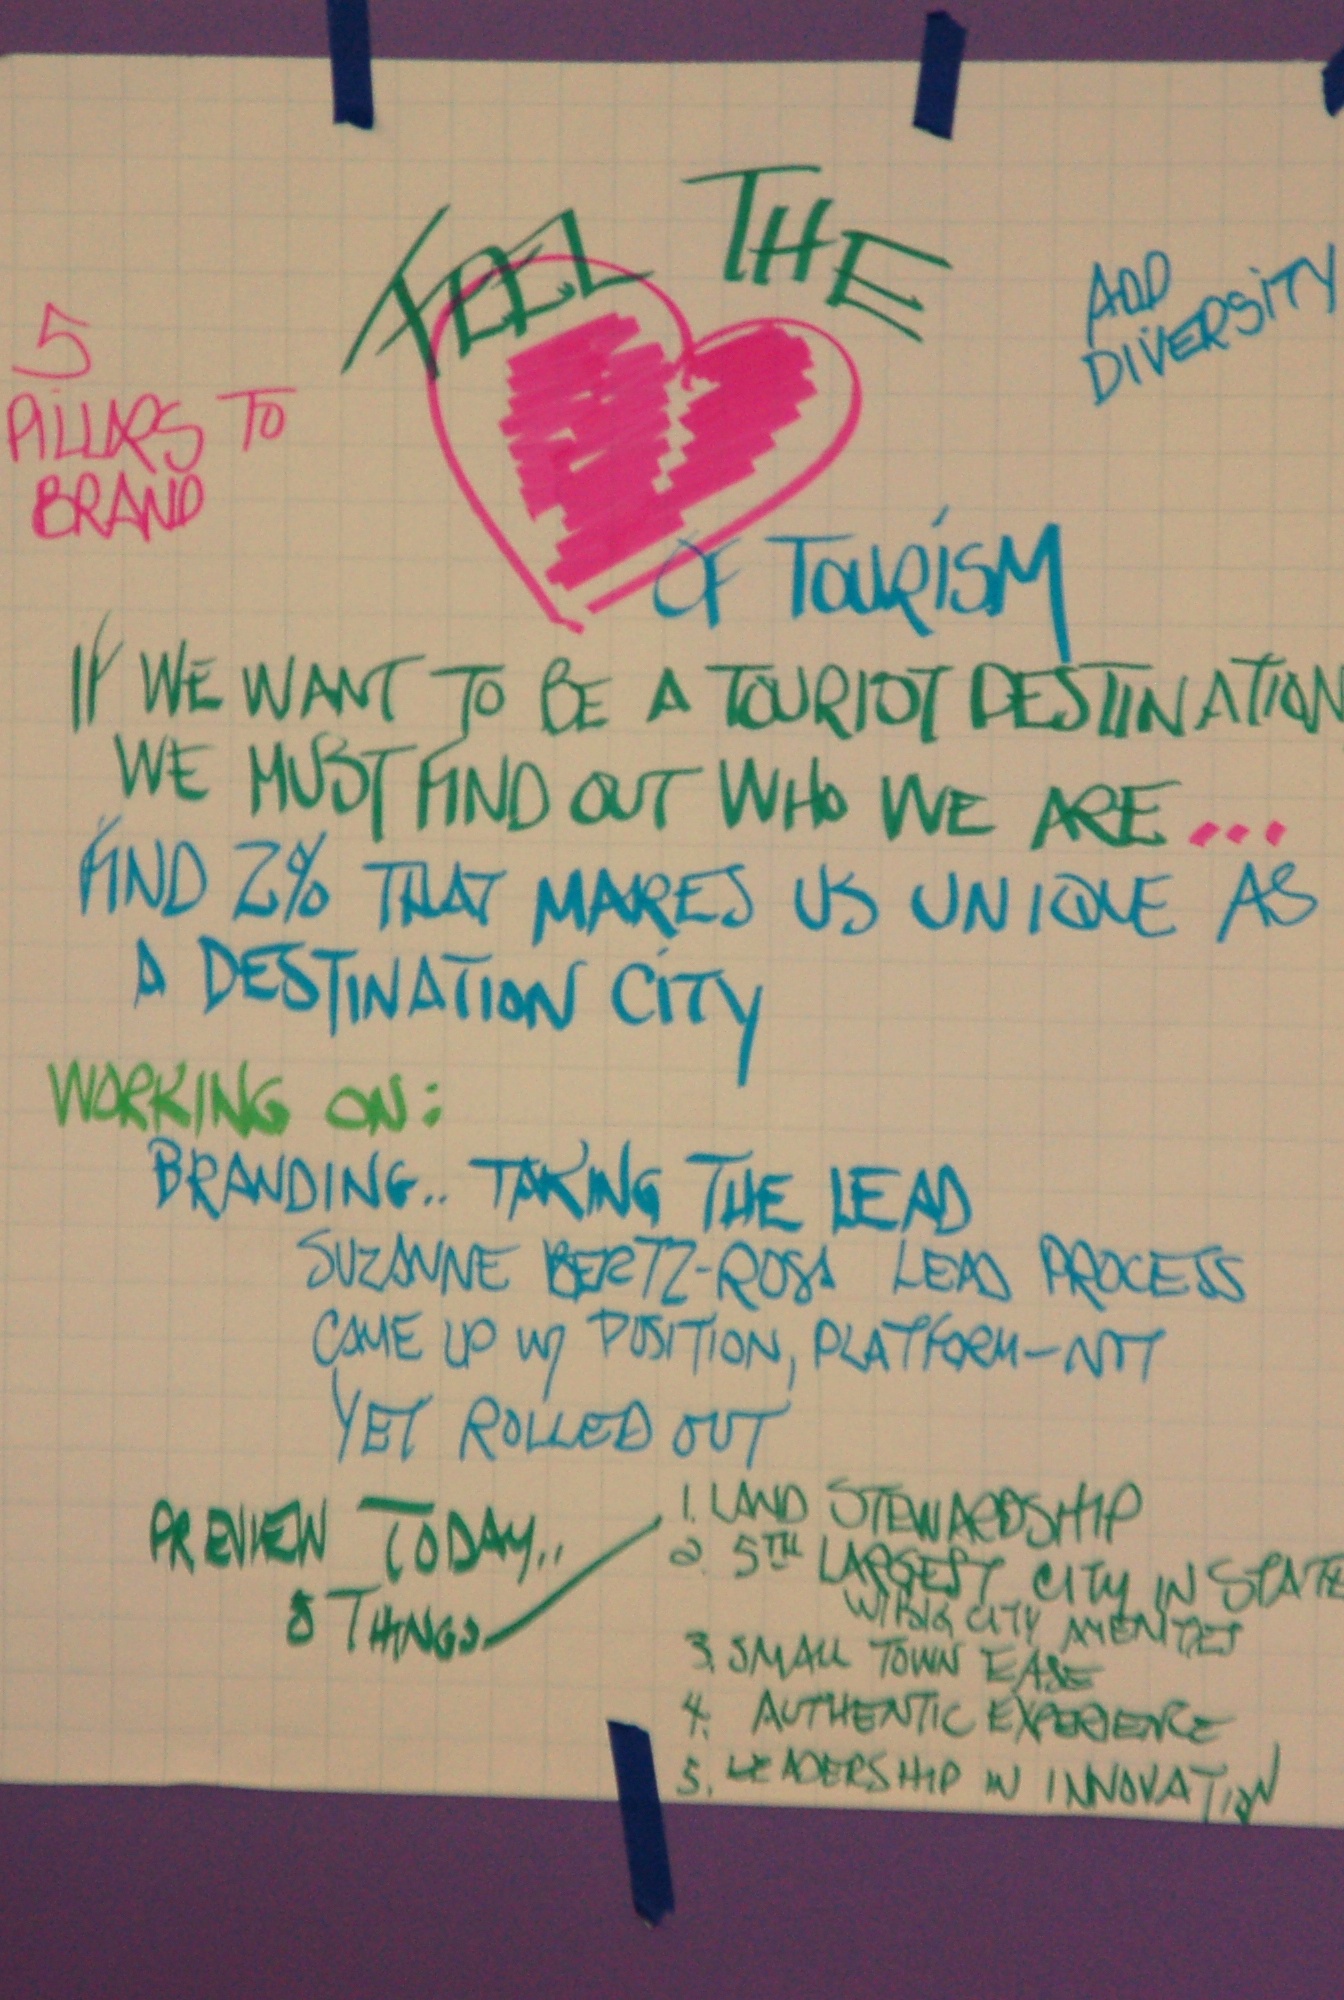 FEEL THE
ADD
DIVERSITY
5
PILLARS TO
BRAND
OF TOURISM
IF WE WANT TO BE A TOURIOT DESTINATION
WE MUST FIND OUT WHO WE ARE...
FIND 2% THAT MAKES US UNIQUE AS
A DESTINATION CITY
WORKING ON:
BRANDING.. TAKING THE LEAD
SUZANNE BERTZ-ROSA LEAD PROCESS
CAME UP W/ POSITION, PLATFORM-NOT
YET ROLLED OUT
PREVIEW TODAY..
5 THINGS
1. LAND STEWARDSHIP
2. 5TH LARGEST CITY IN STATE
W/BIG CITY AMENITIES
3. SMALL TOWN EASE
4. AUTHENTIC EXPERIENCE
5. LEADERSHIP IN INNOVATION